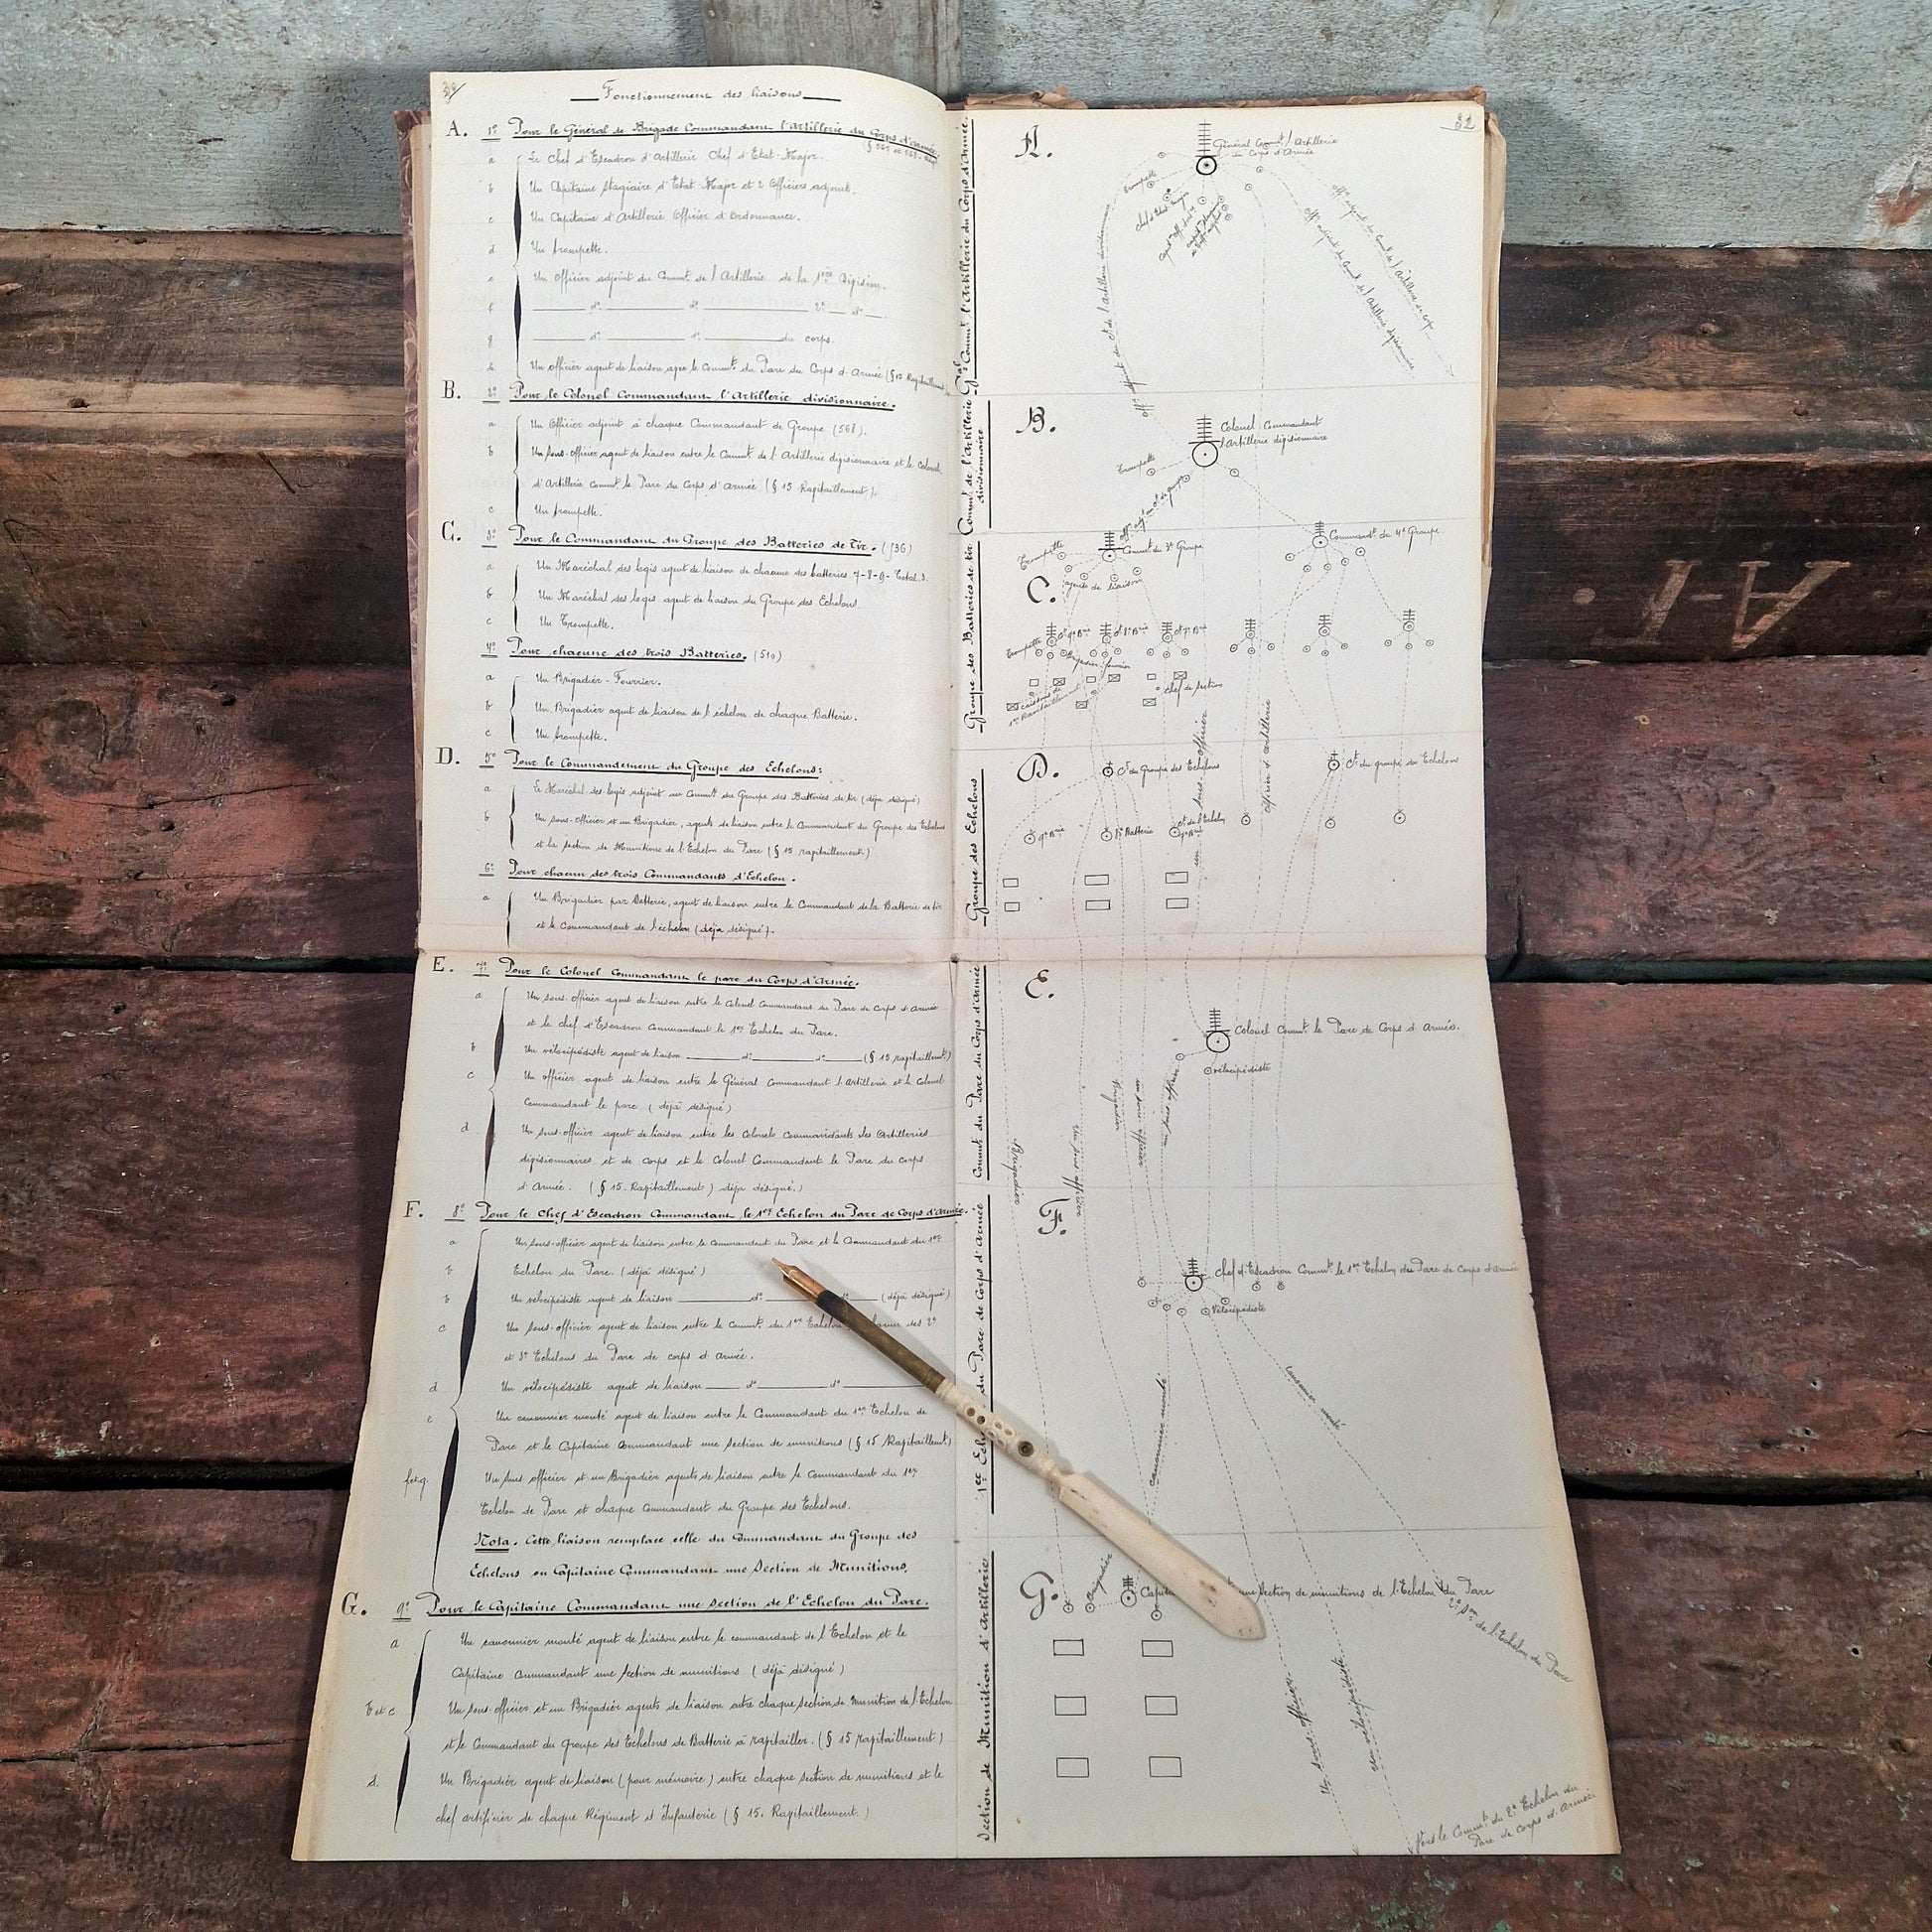 Fonctionnement des liaisons
A. 1º Pour le Général de Brigade Commandant l'Artillerie du Corps d'Armée.
a Le Chef d'Escadron d'Artillerie Chef d'Etat-Major.
b Un Capitaine stagiaire d'Etat-Major et 2 Officiers adjoint.
c Un Capitaine d'Artillerie Officier d'Ordonnance.
d Un trompette.
e Un Officier adjoint du Commt. de l'Artillerie de la 1ère Division.
f dº dº 2º dº
g dº dº du corps.
h Un officier agent de liaison avec le Commt. du Parc du Corps d'Armée (§ 15 Ravitaillement)
B. 2º Pour le Colonel Commandant l'Artillerie divisionnaire.
a Un Officier adjoint à chaque Commandant de Groupe (568).
b Un sous-officier agent de liaison entre le Commt. de l'Artillerie divisionnaire et le Colonel
d'Artillerie commt. le Parc du Corps d'Armée (§ 15 Ravitaillement).
c Un trompette.
C. 3º Pour le Commandant du Groupe des Batteries de Tir. (536)
a Un Maréchal des logis agent de liaison de chacune des batteries 7-8-9- Total 3.
b Un Maréchal des logis agent de liaison du Groupe des Echelons.
c Un Trompette.
4º Pour chacune des trois Batteries. (510)
a Un Brigadier-Fourrier.
b Un Brigadier agent de liaison de l'échelon de chaque Batterie.
c Un trompette.
D. 5º Pour le Commandement du Groupe des Echelons:
a Le Maréchal des logis adjoint au Commt. du Groupe des Batteries de tir (déjà désigné)
b Un sous-officier et un Brigadier, agents de liaison entre le Commandant du Groupe des Echelons
et la section de Munitions de l'Echelon du Parc (§ 15 ravitaillement.)
6º Pour chacun des trois Commandants d'Echelon.
a Un Brigadier par Batterie, agent de liaison entre le Commandant de la Batterie de tir
et le Commandant de l'échelon (déjà désigné).
E. 7º Pour le Colonel Commandant le parc du Corps d'Armée.
a Un sous-officier agent de liaison entre le Colonel Commandant du Parc de Corps d'Armée
et le chef d'Escadron Commandant le 1er Echelon du Parc.
b Un vélocipédiste agent de liaison dº dº (§ 15 ravitaillemt.)
c Un officier agent de liaison entre le Général Commandant l'Artillerie et le Colonel
Commandant le parc (déjà désigné)
d Un sous-officier agent de liaison entre les Colonels Commandants des Artilleries
divisionnaires et de corps et le Colonel Commandant le Parc du corps
d'Armée. (§ 15. Ravitaillement) déjà désigné.)
F. 8º Pour le Chef d'Escadron Commandant le 1er Echelon du Parc de Corps d'Armée.
a Un sous-officier agent de liaison entre le Commandant du Parc et le Commandant du 1er
b Echelon du Parc. (déjà désigné)
b Un vélocipédiste agent de liaison dº dº (déjà désigné)
c Un sous-officier agent de liaison entre le Commt. du 1er Echelon des 2º
et 3º Echelons du Parc de corps d'Armée.
d Un vélocipédiste agent de liaison dº dº
e Un canonnier monté agent de liaison entre le Commandant du 1er Echelon de
Parc et le Capitaine Commandant une section de munitions (§ 15 Ravitaillemt.)
f et g. Un sous officier et un Brigadier agents de liaison entre le Commandant du 1er
Echelon de Parc et chaque Commandant du Groupe des Echelons.
Nota. Cette liaison remplace celle du Commandant du Groupe des
Echelons au Capitaine Commandant une Section de Munitions.
G. 9º Pour le Capitaine Commandant une section de l'Echelon du Parc.
a Un canonnier monté agent de liaison entre le commandant de l'Echelon et le
Capitaine Commandant une section de munitions (déjà désigné)
b et c Un sous-officier et un Brigadier agents de liaison entre chaque Section de Munition de l'Echelon
et le Commandant du Groupe des Echelons de Batterie à ravitailler. (§ 15 ravitaillement)
d. Un Brigadier agent de liaison (pour mémoire) entre chaque section de munitions et le
chef artificier de chaque Régiment d'Infanterie (§ 15. Ravitaillement.)
32
Gal Commt. l'Artillerie du Corps d'Armée
A.
Général Commt l'Artillerie
du Corps d'Armée
Trompette
chef d'Etat Major
offr. adjoint du Ct de l'Artillerie divisionnaire
offr. adjoint du Commt de l'Artillerie divisionnaire
offr. adjoint du Commt de l'Artillerie de corps
Commt. de l'Artillerie
divisionnaire
B.
Colonel Commandant
l'Artillerie divisionnaire
Trompette
Groupe des Batteries de tir
C.
Trompette
Commt du 3e Groupe
agents de liaison
Commandt du 4e Groupe
Ct 9e Bie
Ct 8e Bie
Ct 7e Bie
Trompette
Brigadier fourrier
caissons de
1er Ravitaillement
chef de section
Groupe des Echelons
D.
Ct du Groupe des Echelons
Ct du groupe des Echelons
9e Bie
8e Batterie
Ct de l'Echelon
7e Bie
un sous-officier
officier d'artillerie
Commt. du Parc du Corps d'Armée
E.
Colonel Commt. le Parc de Corps d'Armée.
vélocipédiste
Brigadier
Un sous officier
Brigadier
un sous officier
un sous officier
1er Echelon du Parc de Corps d'Armée
F.
chef d'Escadron Commt. le 1er Echelon du Parc de Corps d'Armée
Vélocipédiste
canonnier monté
canonnier monté
Section de Munition d'Artillerie
G.
Brigadier
une Section de munitions de l'Echelon du Parc
2e Son de l'Echelon du Parc
Un sous-officier
un vélocipédiste
Vers le Commt du 2e Echelon du
Parc de corps d'Armée.